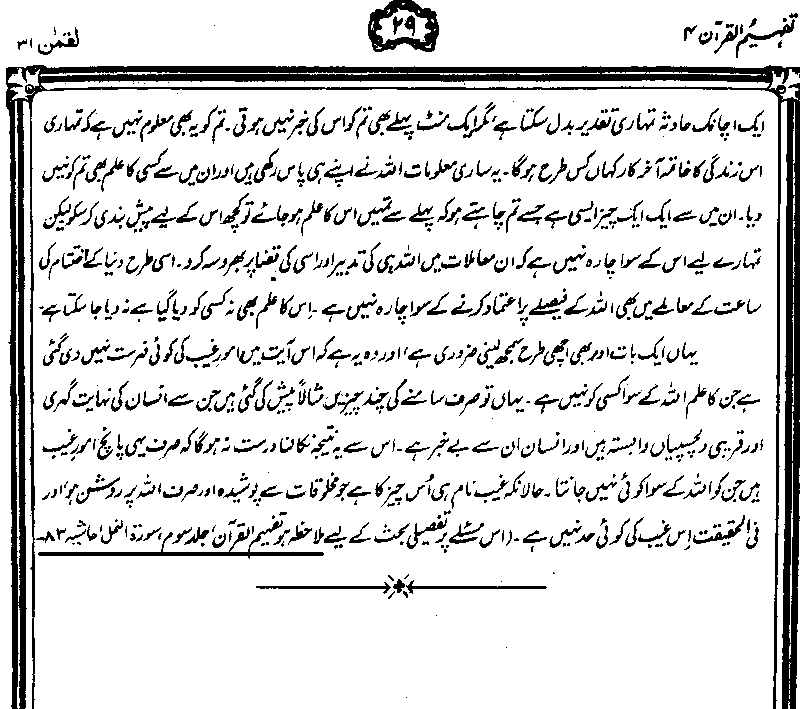 تفہیم القرآن ۴
۲۹
لقمٰن ۳۱
ایک اچانک حادثہ تمہاری تقدیر بدل سکتا ہے، مگر ایک منٹ پہلے بھی تم کو اس کی خبر نہیں ہوتی۔ تم کو یہ بھی معلوم نہیں ہے کہ تمہاری
اس زندگی کا خاتمہ آخر کار کہاں کس طرح ہو گا۔ یہ ساری معلومات اللہ نے اپنے ہی پاس رکھی ہیں اور ان میں سے کسی کا علم بھی تم کو نہیں
دیا۔ ان میں سے ایک ایک چیز ایسی ہے جسے تم چاہتے ہو کہ پہلے سے تمہیں اس کا علم ہو جائے تو کچھ اس کے لیے پیش بندی کر سکو لیکن
تمہارے لیے اس کے سوا چارہ نہیں ہے کہ ان معاملات میں اللہ ہی کی تدبیر اور اسی کی قضا پر بھروسہ کرو۔ اسی طرح دنیا کے اختتام کی
ساعت کے معاملے میں بھی اللہ کے فیصلے پر اعتماد کرنے کے سوا چارہ نہیں ہے۔ اِس کا علم بھی نہ کسی کو دیا گیا ہے نہ دیا جا سکتا ہے۔
یہاں ایک بات اور بھی اچھی طرح سمجھ لینی ضروری ہے، اور وہ یہ ہے کہ اس آیت میں امورِ غیب کی کوئی فہرست نہیں دی گئی
ہے جن کا علم اللہ کے سوا کسی کو نہیں ہے۔ یہاں تو صرف سامنے کی چند چیزیں مثالاً پیش کی گئی ہیں جن سے انسان کی نہایت گہری
اور قریبی دلچسپیاں وابستہ ہیں اور انسان ان سے بے خبر ہے۔ اس سے یہ نتیجہ نکالنا درست نہ ہو گا کہ صرف یہی پانچ امورِ غیب
ہیں جن کو اللہ کے سوا کوئی نہیں جانتا۔ حالانکہ غیب نام ہی اُس چیز کا ہے جو مخلوقات سے پوشیدہ اور صرف اللہ پر روشن ہو، اور
فی الحقیقت اِس غیب کی کوئی حد نہیں ہے۔ (اس مسئلے پر تفصیلی بحث کے لیے ملاحظہ ہو تفہیم القرآن، جلد سوم، سورۃ النمل، حاشیہ ۸۳۔